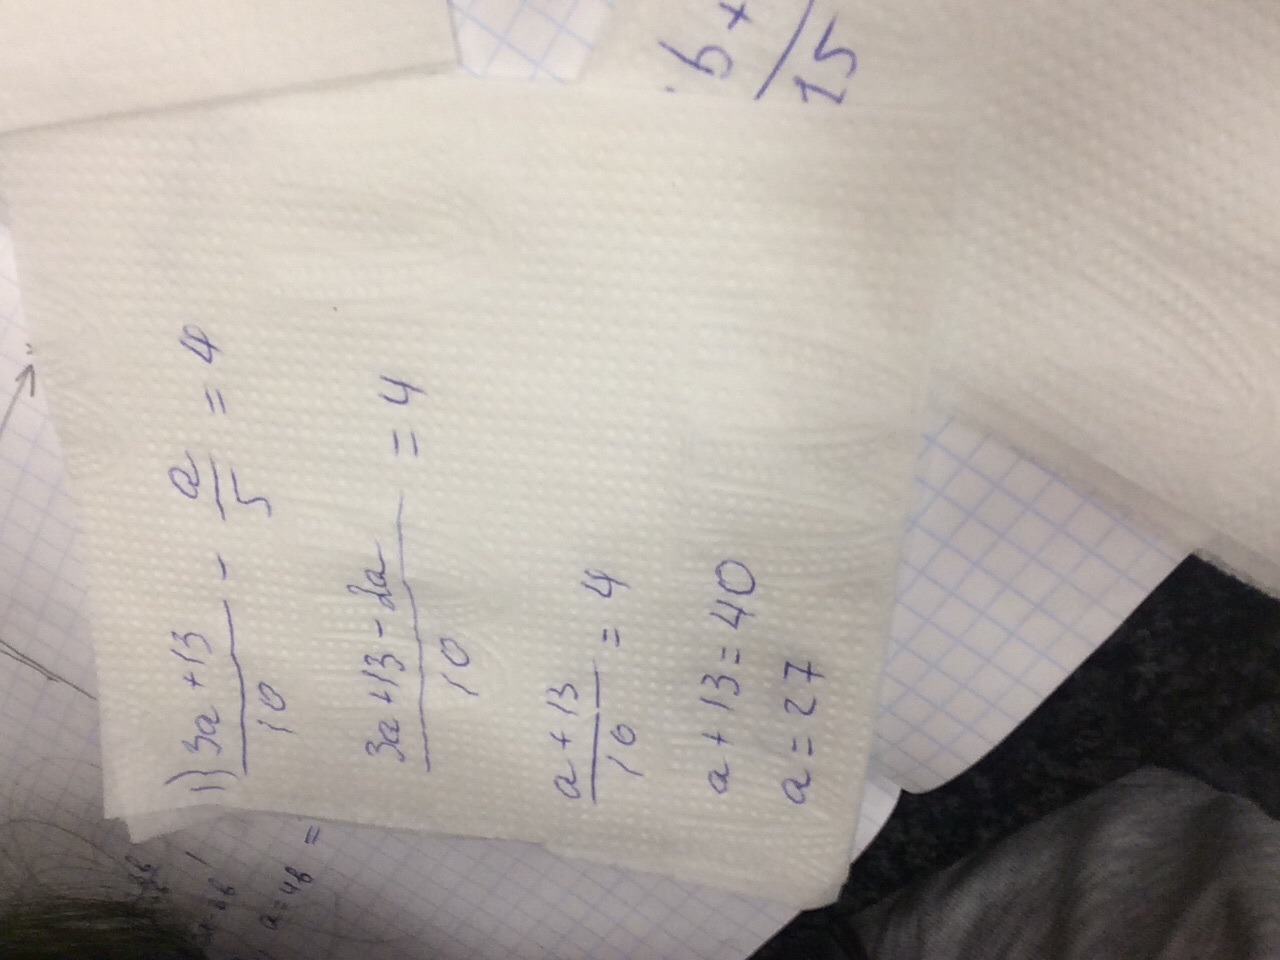 1) 3a+13/10 - a/5 = 4
3a+13-2a/10 = 4
a+13/10 = 4
a+13=40
a=27
b+
15
a=4b =